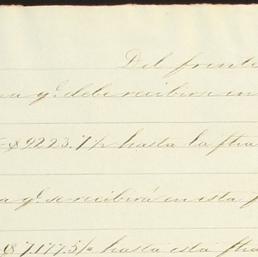 Del frente
a y.e debe recibirse en
$9223.7/2 hasta la fha
a y.e se recibirá en esta f
$7,177.5/2 hasta esta fha